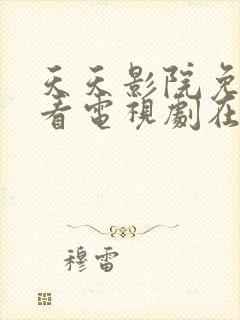 天天影院免
看电視劇在
穆雷